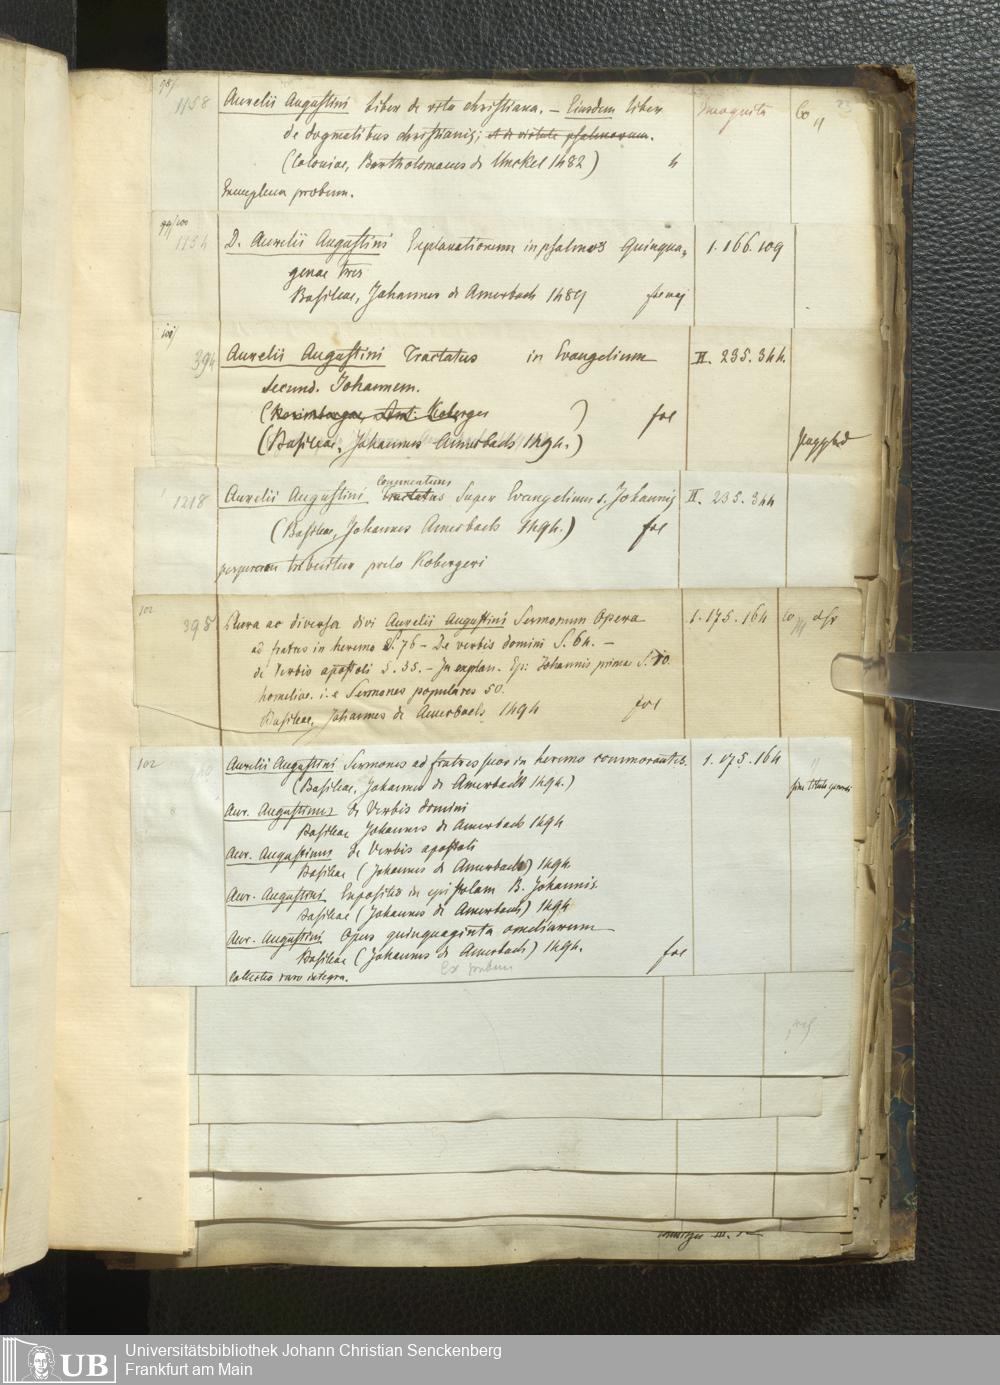 98/
1158 Aurelii Augustini liber de vita christiana. – Eiusdem liber Incognita Co 4
de dogmatibus christianis; et de virtute psalmorum.
(Coloniae, Bartholomaeus de Unckel 1482) 4
Exemplum probum.
99/100
1154 D. Aurelii Augustini Explanationum in psalmos Quinqua- 1. 166. 109
genae tres
Basileae, Johannes de Amerbach 1489 fol maj
101/
394 Aurelii Augustini Tractatus in Evangelium II. 235. 344.
secund. Johannem.
(Norimbergae, Ant. Koberger ) fol
(Basileae, Johannes Amerbach 1494.)
1218 Aurelii Augustini Tractatus Commentum super Evangelium s. Johannis II. 235. 344
(Basileae, Johannes Amerbach 1494.) fol
perperam tribuitur prelo Kobergeri
102
395 Plura ac diversa divi Aurelii Augustini Sermonum Opera 1. 175. 164
ad fratres in heremo S. 76 – De verbis domini S. 64. –
de Verbis apostoli S. 35. – In explan. Ep: Johannis prima S. 10.
homeliae. i. e Sermones populares 50.
Basileae, Johannes de Amerbach 1494 fol
102 Aurelii Augustini Sermones ad fratres suos in heremo commorantes. 1. 175. 164
(Basileae, Johannes de Amerbach 1494.) sine titulo
Aur. Augustinus de Verbis domini
Basileae Johannes de Amerbach 1494
Aur. Augustinus de Verbis apostoli
Basileae (Johannes de Amerbach) 1494.
Aur. Augustini Expositio in epistolam B. Johannis
Basileae (Johannes de Amerbach) 1494
Aur. Augustini Opus quinquaginta omeliarum
Basileae (Johannes de Amerbach) 1494. fol
Collectio raro integra. Ex probum
UB
Universitätsbibliothek Johann Christian Senckenberg
Frankfurt am Main